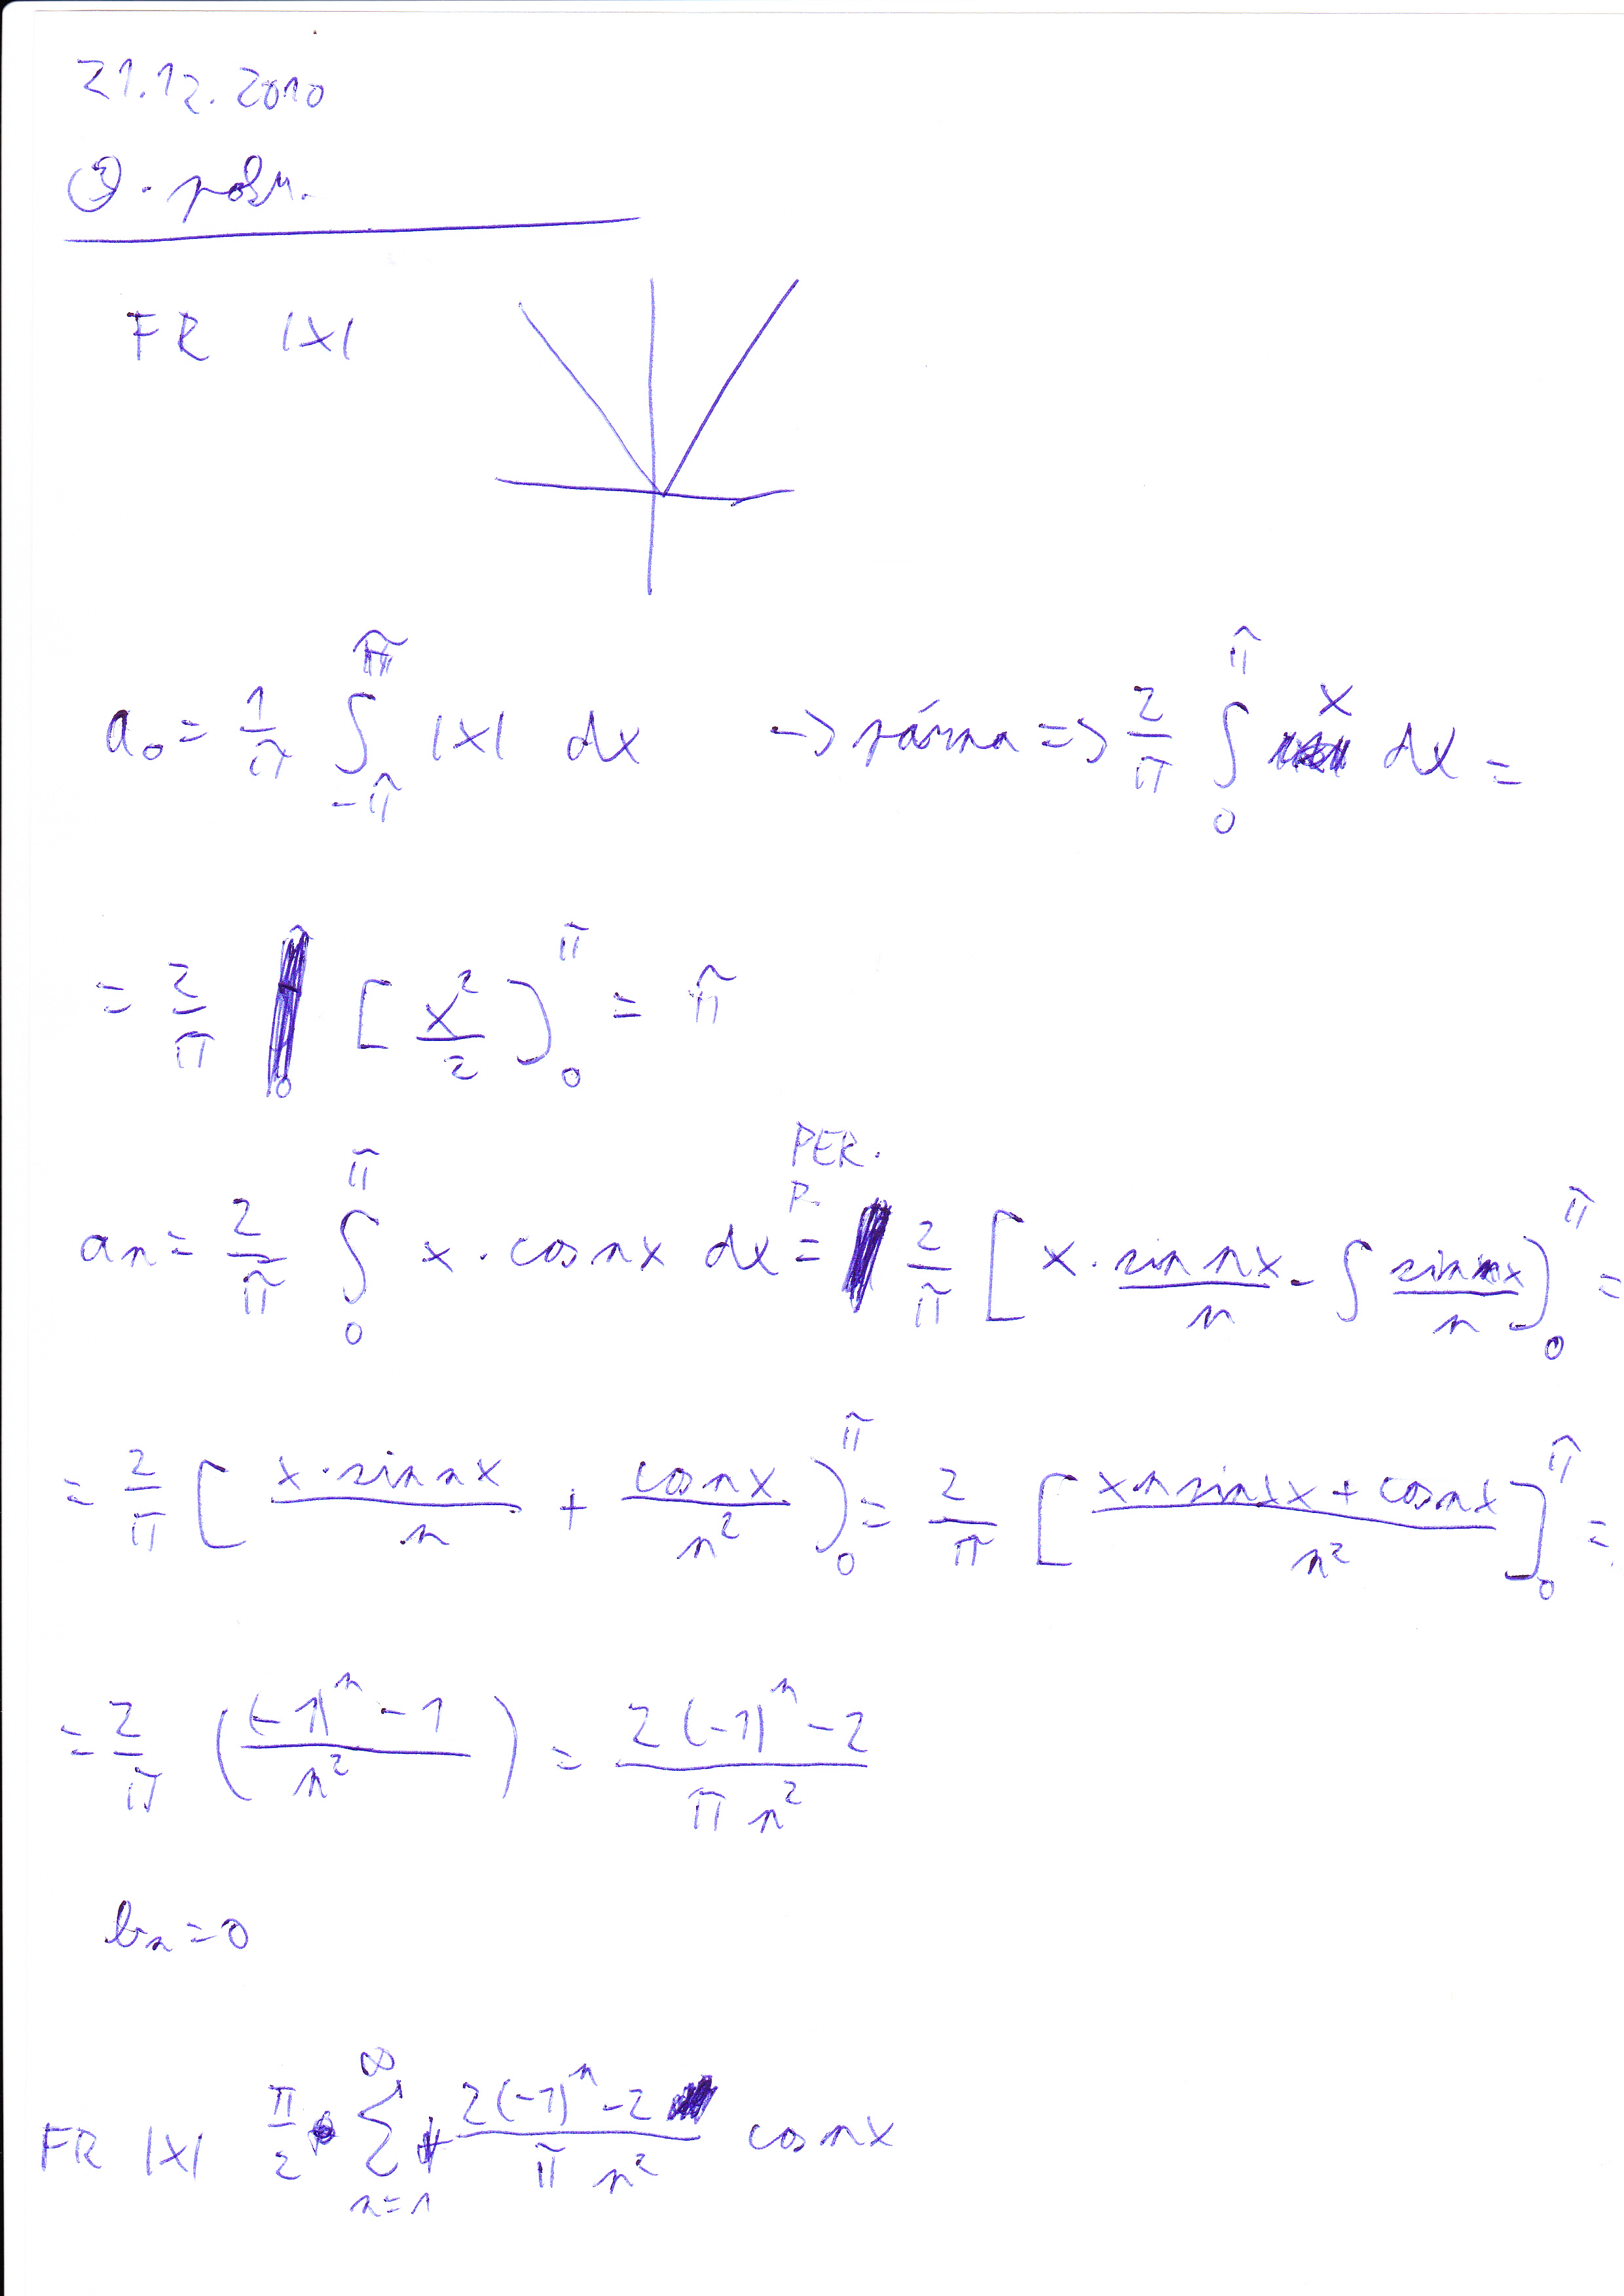 21.12.2010
FR |x|
a₀ = 1/π ∫_{-π}^{π} |x| dx -> párna => 2/π ∫_0^π x dx =
= 2/π [x²/2]_0^π = π
PER.
P.
an = 2/π ∫_0^π x · cos nx dx = 2/π [x · sin nx/n - ∫ sin nx/n]_0^π =
= 2/π [x · sin nx/n + cos nx/n²]_0^π = 2/π [x n sin nx + cos nx/n²]_0^π =
= 2/π ((-1)ⁿ - 1/n²) = 2(-1)ⁿ - 2/π n²
bn = 0
FR |x| π/2 ∑_{n=1}^∞ 2(-1)ⁿ - 2/π n² cos nx